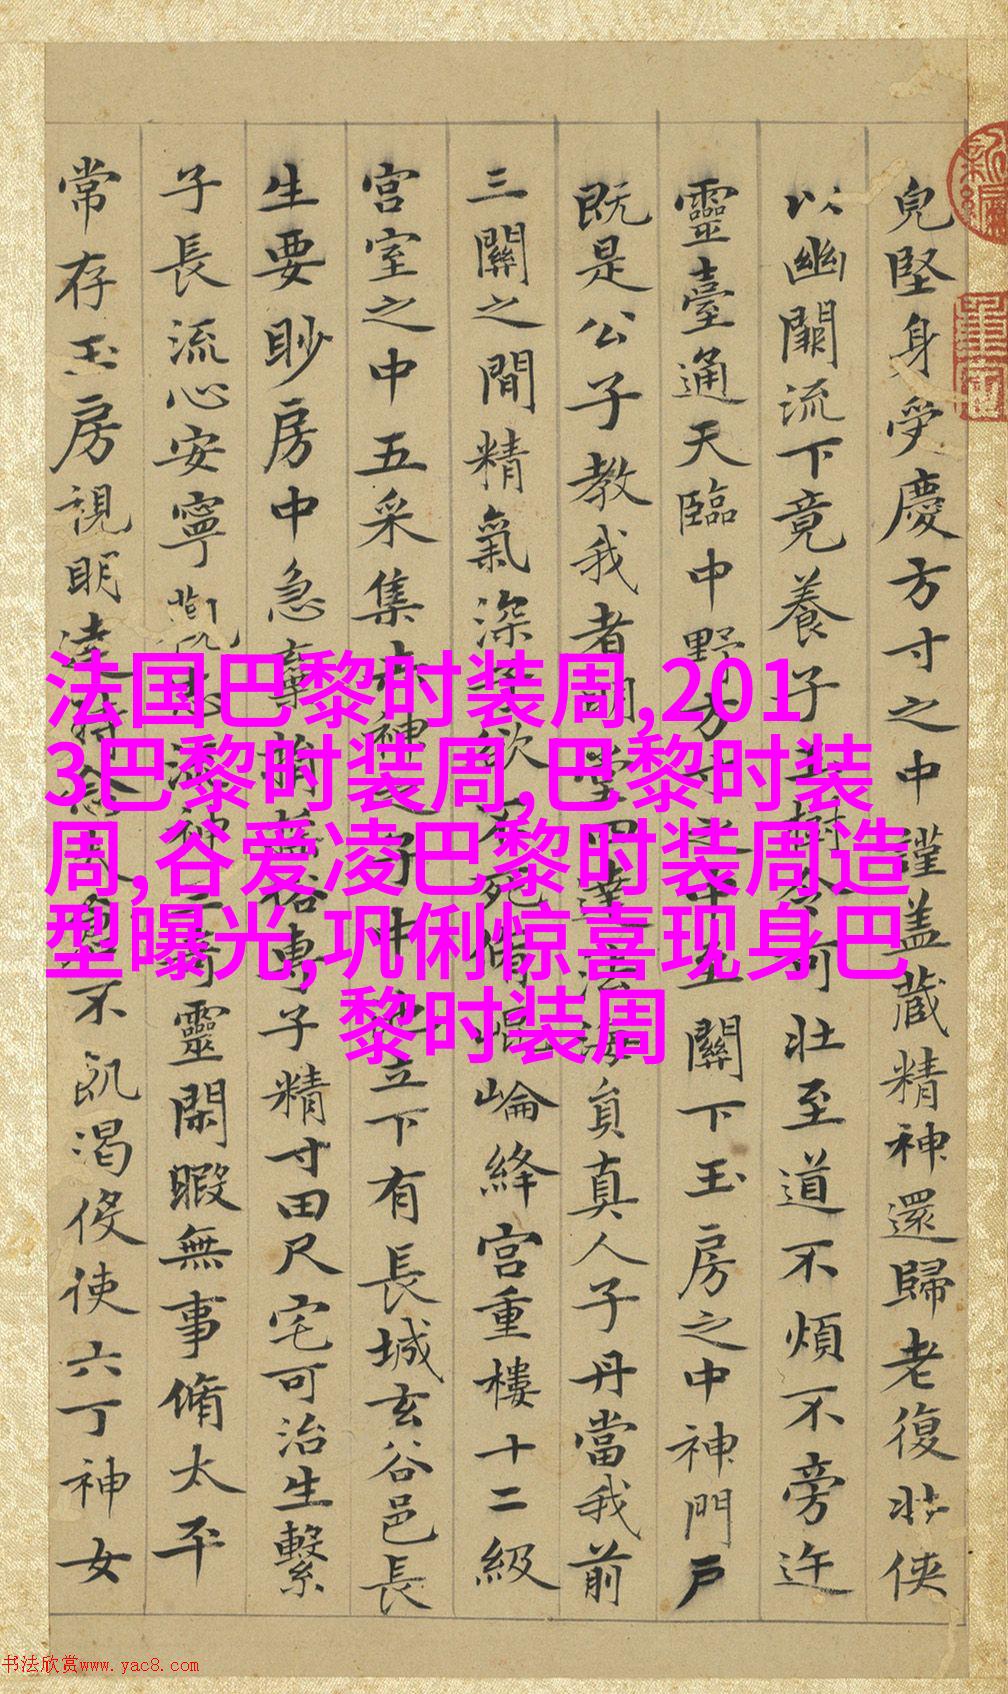 皃堅身受慶方寸之中謹盖藏精神還歸老復壯俠
以幽闕流下竟養子玉樹令可壯至道不煩不旁迕
靈臺通天臨中野方寸之中至關下玉房之中神門戶
既是公子教我者明堂四達法海負真人子丹當我前
三關之間精氣深子欲不死脩崐崘絳宮重樓十二級
宮室之中五采集赤神之子中池立下有長城玄谷邑長
生要眇房中急棄捐俗專子精寸田尺宅可治生繫
子長流心安寧觀志流神三奇靈閑暇無事脩太平
常存玉房視明達時念大倉不飢渴伇使六丁神女
法国巴黎时装周,201
3巴黎时装周,巴黎时装
周,谷爱凌巴黎时装周造
型曝光,巩俐惊喜现身巴
黎时装周
书法欣赏www.yac8.com